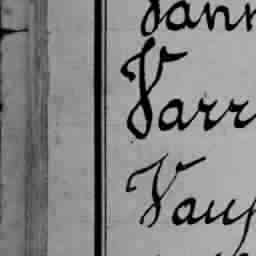 Vann
Varr
Vau